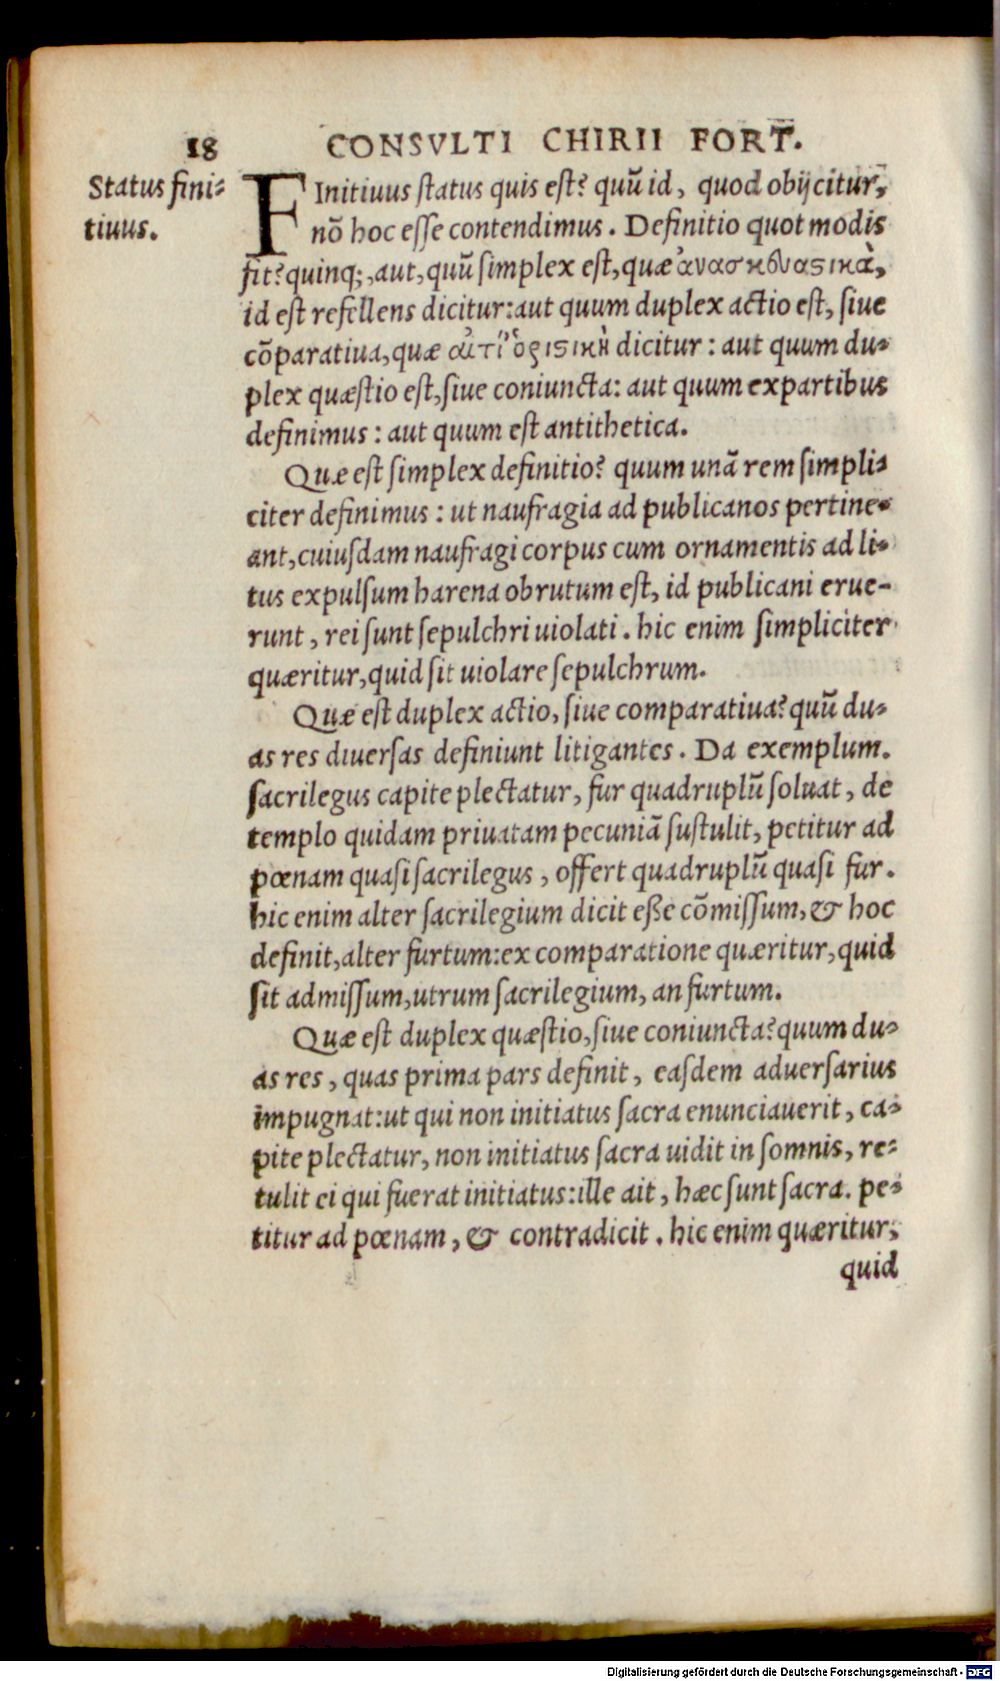 18 CONSVLTI CHIRII FORT.
Status fini-
tiuus.
FInitiuus status quis est? quũ id, quod obijcitur,
nõ hoc esse contendimus. Definitio quot modis
fit? quinq;, aut, quũ simplex est, quæ ἀνασκευαστικὰ,
id est refellens dicitur: aut quum duplex actio est, siue
cõparatiua, quæ dicitur: aut quum du-
plex quæstio est, siue coniuncta: aut quum expartibus
definimus: aut quum est antithetica.
Quæ est simplex definitio? quum unã rem simpli-
citer definimus: ut naufragia ad publicanos pertine-
ant, cuiusdam naufragi corpus cum ornamentis ad li-
tus expulsum harena obrutum est, id publicani erue-
runt, rei sunt sepulchri uiolati. hic enim simpliciter
quæritur, quid sit uiolare sepulchrum.
Quæ est duplex actio, siue comparatiua? quũ du-
as res diuersas definiunt litigantes. Da exemplum.
sacrilegus capite plectatur, fur quadruplũ soluat, de
templo quidam priuatam pecuniã sustulit, petitur ad
pœnam quasi sacrilegus, offert quadruplũ quasi fur.
hic enim alter sacrilegium dicit eße cõmissum, & hoc
definit, alter furtum: ex comparatione quæritur, quid
sit admissum, utrum sacrilegium, an furtum.
Quæ est duplex quæstio, siue coniuncta? quum du-
as res, quas prima pars definit, easdem aduersarius
impugnat: ut qui non initiatus sacra enunciauerit, ca-
pite plectatur, non initiatus sacra uidit in somnis, re-
tulit ei qui fuerat initiatus: ille ait, hæc sunt sacra. pe-
titur ad pœnam, & contradicit. hic enim quæritur,
quid
Digitalisierung gefördert durch die Deutsche Forschungsgemeinschaft - DFG